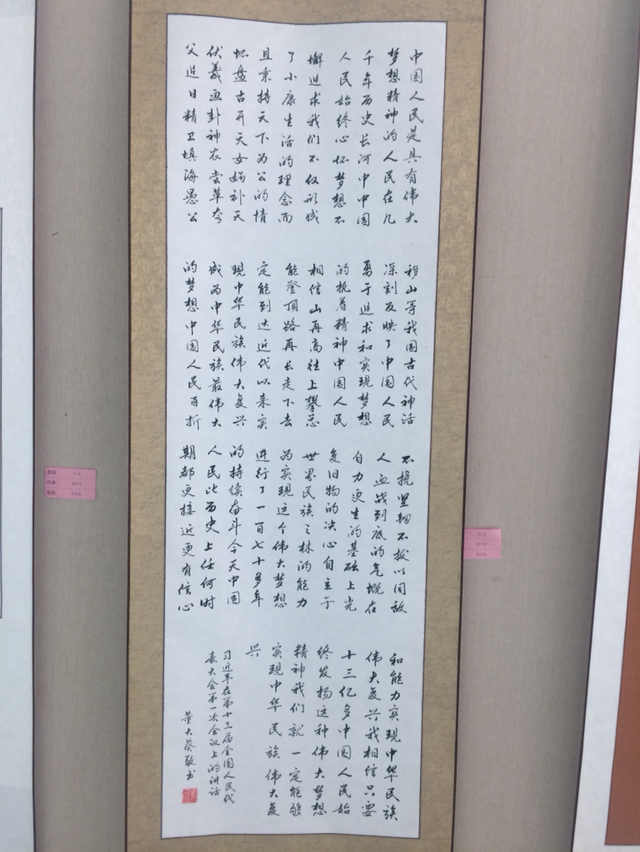 中国人民是具有伟大
梦想精神的人民在几
千年历史长河中中国
人民始终心怀梦想不
懈追求我们不仅形成
了小康生活的理念而
且秉持天下为公的情
怀盘古开天女娲补天
伏羲画卦神农尝草夸
父追日精卫填海愚公
移山等我国古代神话
深刻反映了中国人民
勇于追求和实现梦想
的执着精神中国人民
相信山再高往上攀总
能登顶路再长走下去
定能到达近代以来实
现中华民族伟大复兴
成为中华民族最伟大
的梦想中国人民百折
不挠坚韧不拔以同敌
人血战到底的气概在
自力更生的基础上光
复旧物的决心自立于
世界民族之林的能力
为实现这个伟大梦想
进行了一百七十多年
的持续奋斗今天中国
人民比历史上任何时
期都更接近更有信心
和能力实现中华民族
伟大复兴我相信只要
十三亿多中国人民始
终发扬这种伟大梦想
精神我们就一定能够
实现中华民族伟大复
兴
习近平在第十三届全国人民代
表大会第一次会议上的讲话
敬书